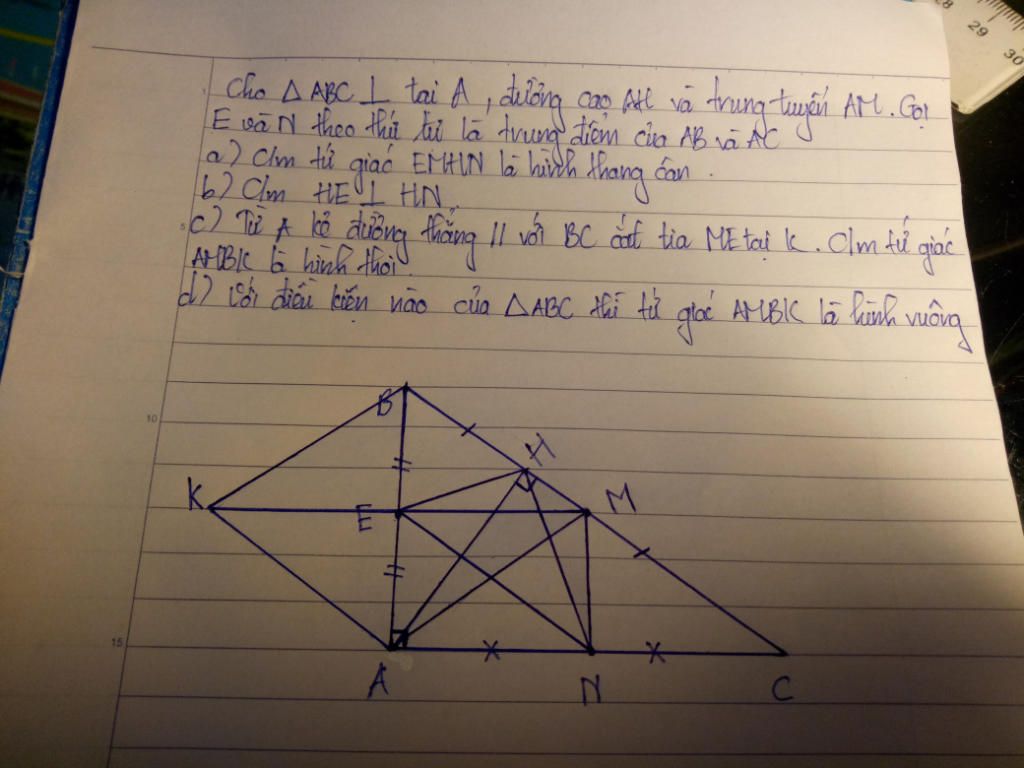 Cho △ABC ⊥ tại A, đường cao AH và trung tuyến AM. Gọi
E và N theo thứ tự là trung điểm của AB và AC
a) Cm tứ giác EMHN là hình thang cân.
b) Cm HE ⊥ HN.
c) Từ A kẻ đường thẳng // với BC cắt tia ME tại K. Cm tứ giác
AMBK là hình thoi.
d) Với điều kiện nào của △ABC thì tứ giác AMBK là hình vuông
B
H
K
E
M
A
N
C
5
10
15
28
29
30